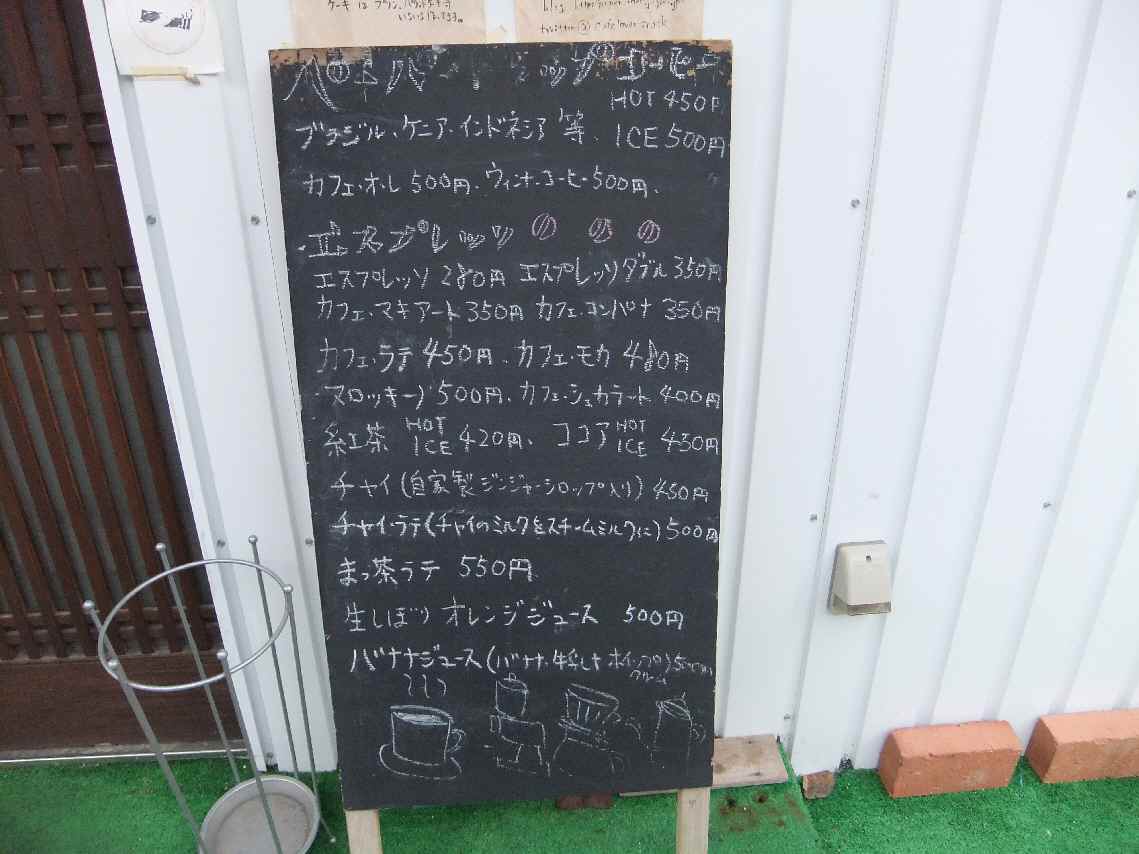 ケーキは ブラン、パウンドケーキ
いろいろ有ります。
ハンドドリップコーヒー
HOT 450円
ブラジル、ケニア・インドネシア 等、 ICE 500円
カフェ・オ・レ 500円、ウィンナ・コーヒー 500円、
・エスプレッソ
エスプレッソ 280円 エスプレッソダブル 350円
カフェ・マキアート 350円 カフェ・コンパナ 350円
カフェ・ラテ 450円、カフェ・モカ 480円
マロッキーノ 500円、カフェ・ショカラート 400円
紅茶 HOT ICE 420円、 ココア HOT ICE 430円
チャイ(自家製ジンジャーシロップ入り) 450円
チャイ・ラテ(チャイのミルクをスチームミルクに) 500円
まっ茶ラテ 550円
生しぼり オレンジジュース 500円
バナナジュース(バナナ、牛乳とホイップクリーム)